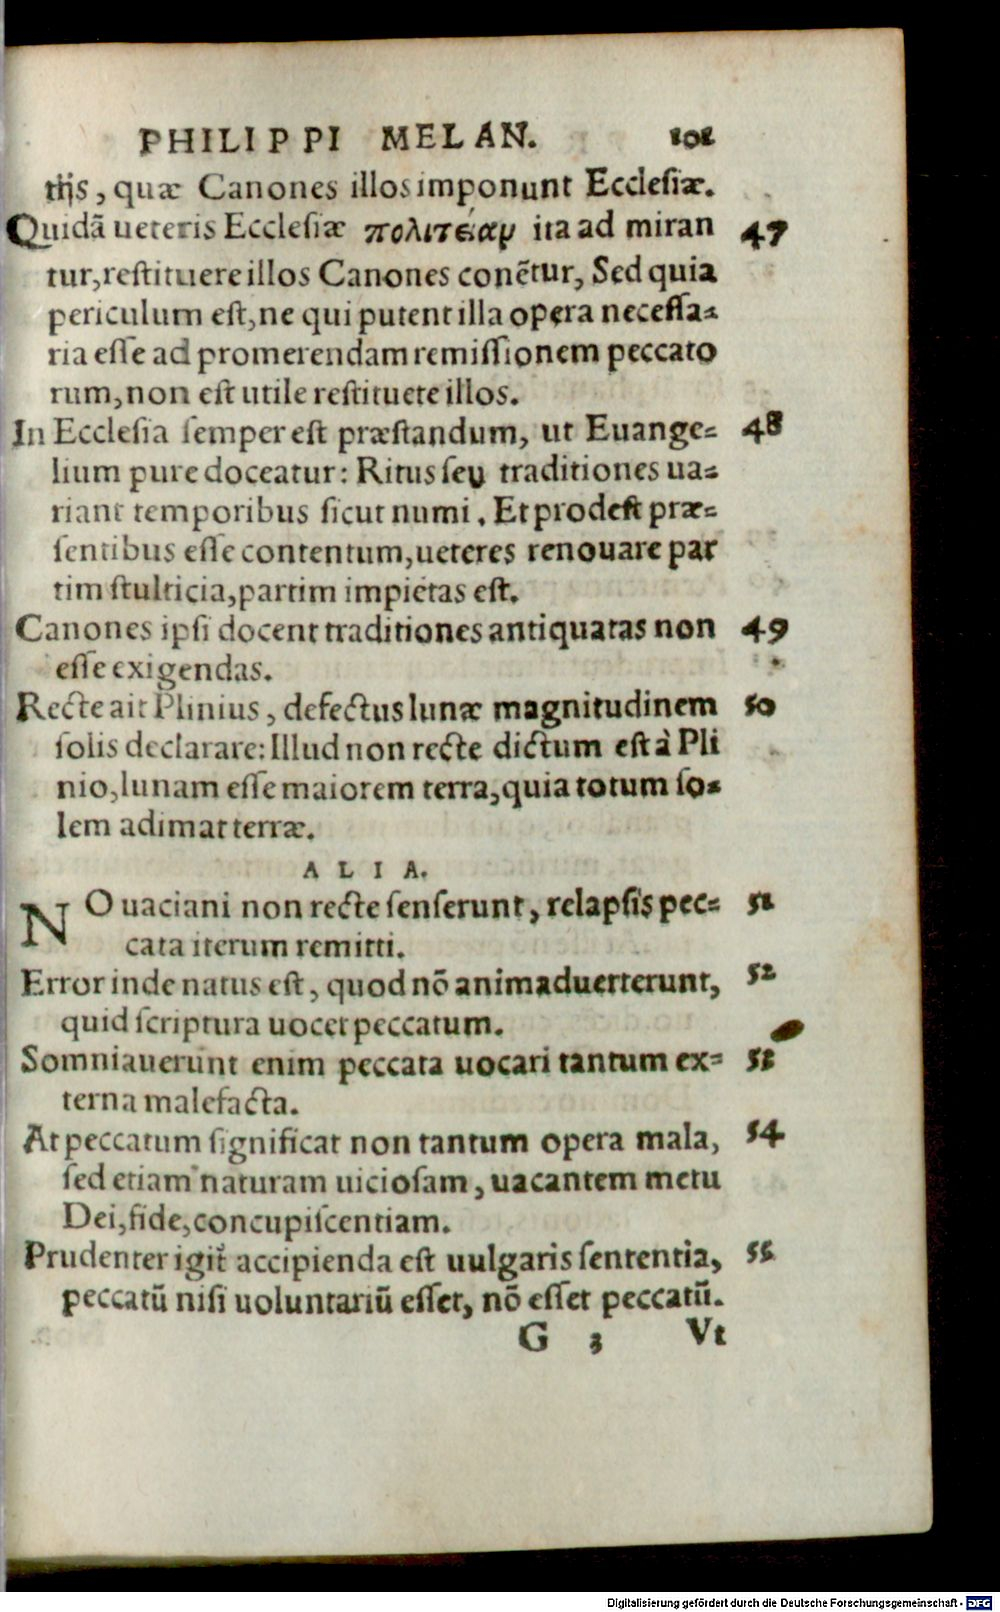 PHILIPPI MELAN. 101
tijs, quæ Canones illos imponunt Ecclesiæ.
Quidã ueteris Ecclesiæ πολιτείαν ita ad miran 47
tur, restituere illos Canones conẽtur, Sed quia
periculum est, ne qui putent illa opera necessa=
ria esse ad promerendam remissionem peccato
rum, non est utile restituere illos.
In Ecclesia semper est præstandum, ut Euange= 48
lium pure doceatur: Ritus seu traditiones ua=
riant temporibus sicut numi. Et prodest præ=
sentibus esse contentum, ueteres renouare par
tim stulticia, partim impietas est.
Canones ipsi docent traditiones antiquatas non 49
esse exigendas.
Recte ait Plinius, defectus lunæ magnitudinem 50
solis declarare: Illud non recte dictum est à Pli
nio, lunam esse maiorem terra, quia totum so=
lem adimat terræ.
ALIA.
NOuaciani non recte senserunt, relapsis pec= 51
cata iterum remitti.
Error inde natus est, quod nõ animaduerterunt, 52
quid scriptura uocet peccatum.
Somniauerunt enim peccata uocari tantum ex= 53
terna malefacta.
At peccatum significat non tantum opera mala, 54
sed etiam naturam uiciosam, uacantem metu
Dei, fide, concupiscentiam.
Prudenter igit̃ accipienda est uulgaris sententia, 55
peccatũ nisi uoluntariũ esset, nõ esset peccatũ.
G 3 Vt
Digitalisierung gefördert durch die Deutsche Forschungsgemeinschaft - DFG